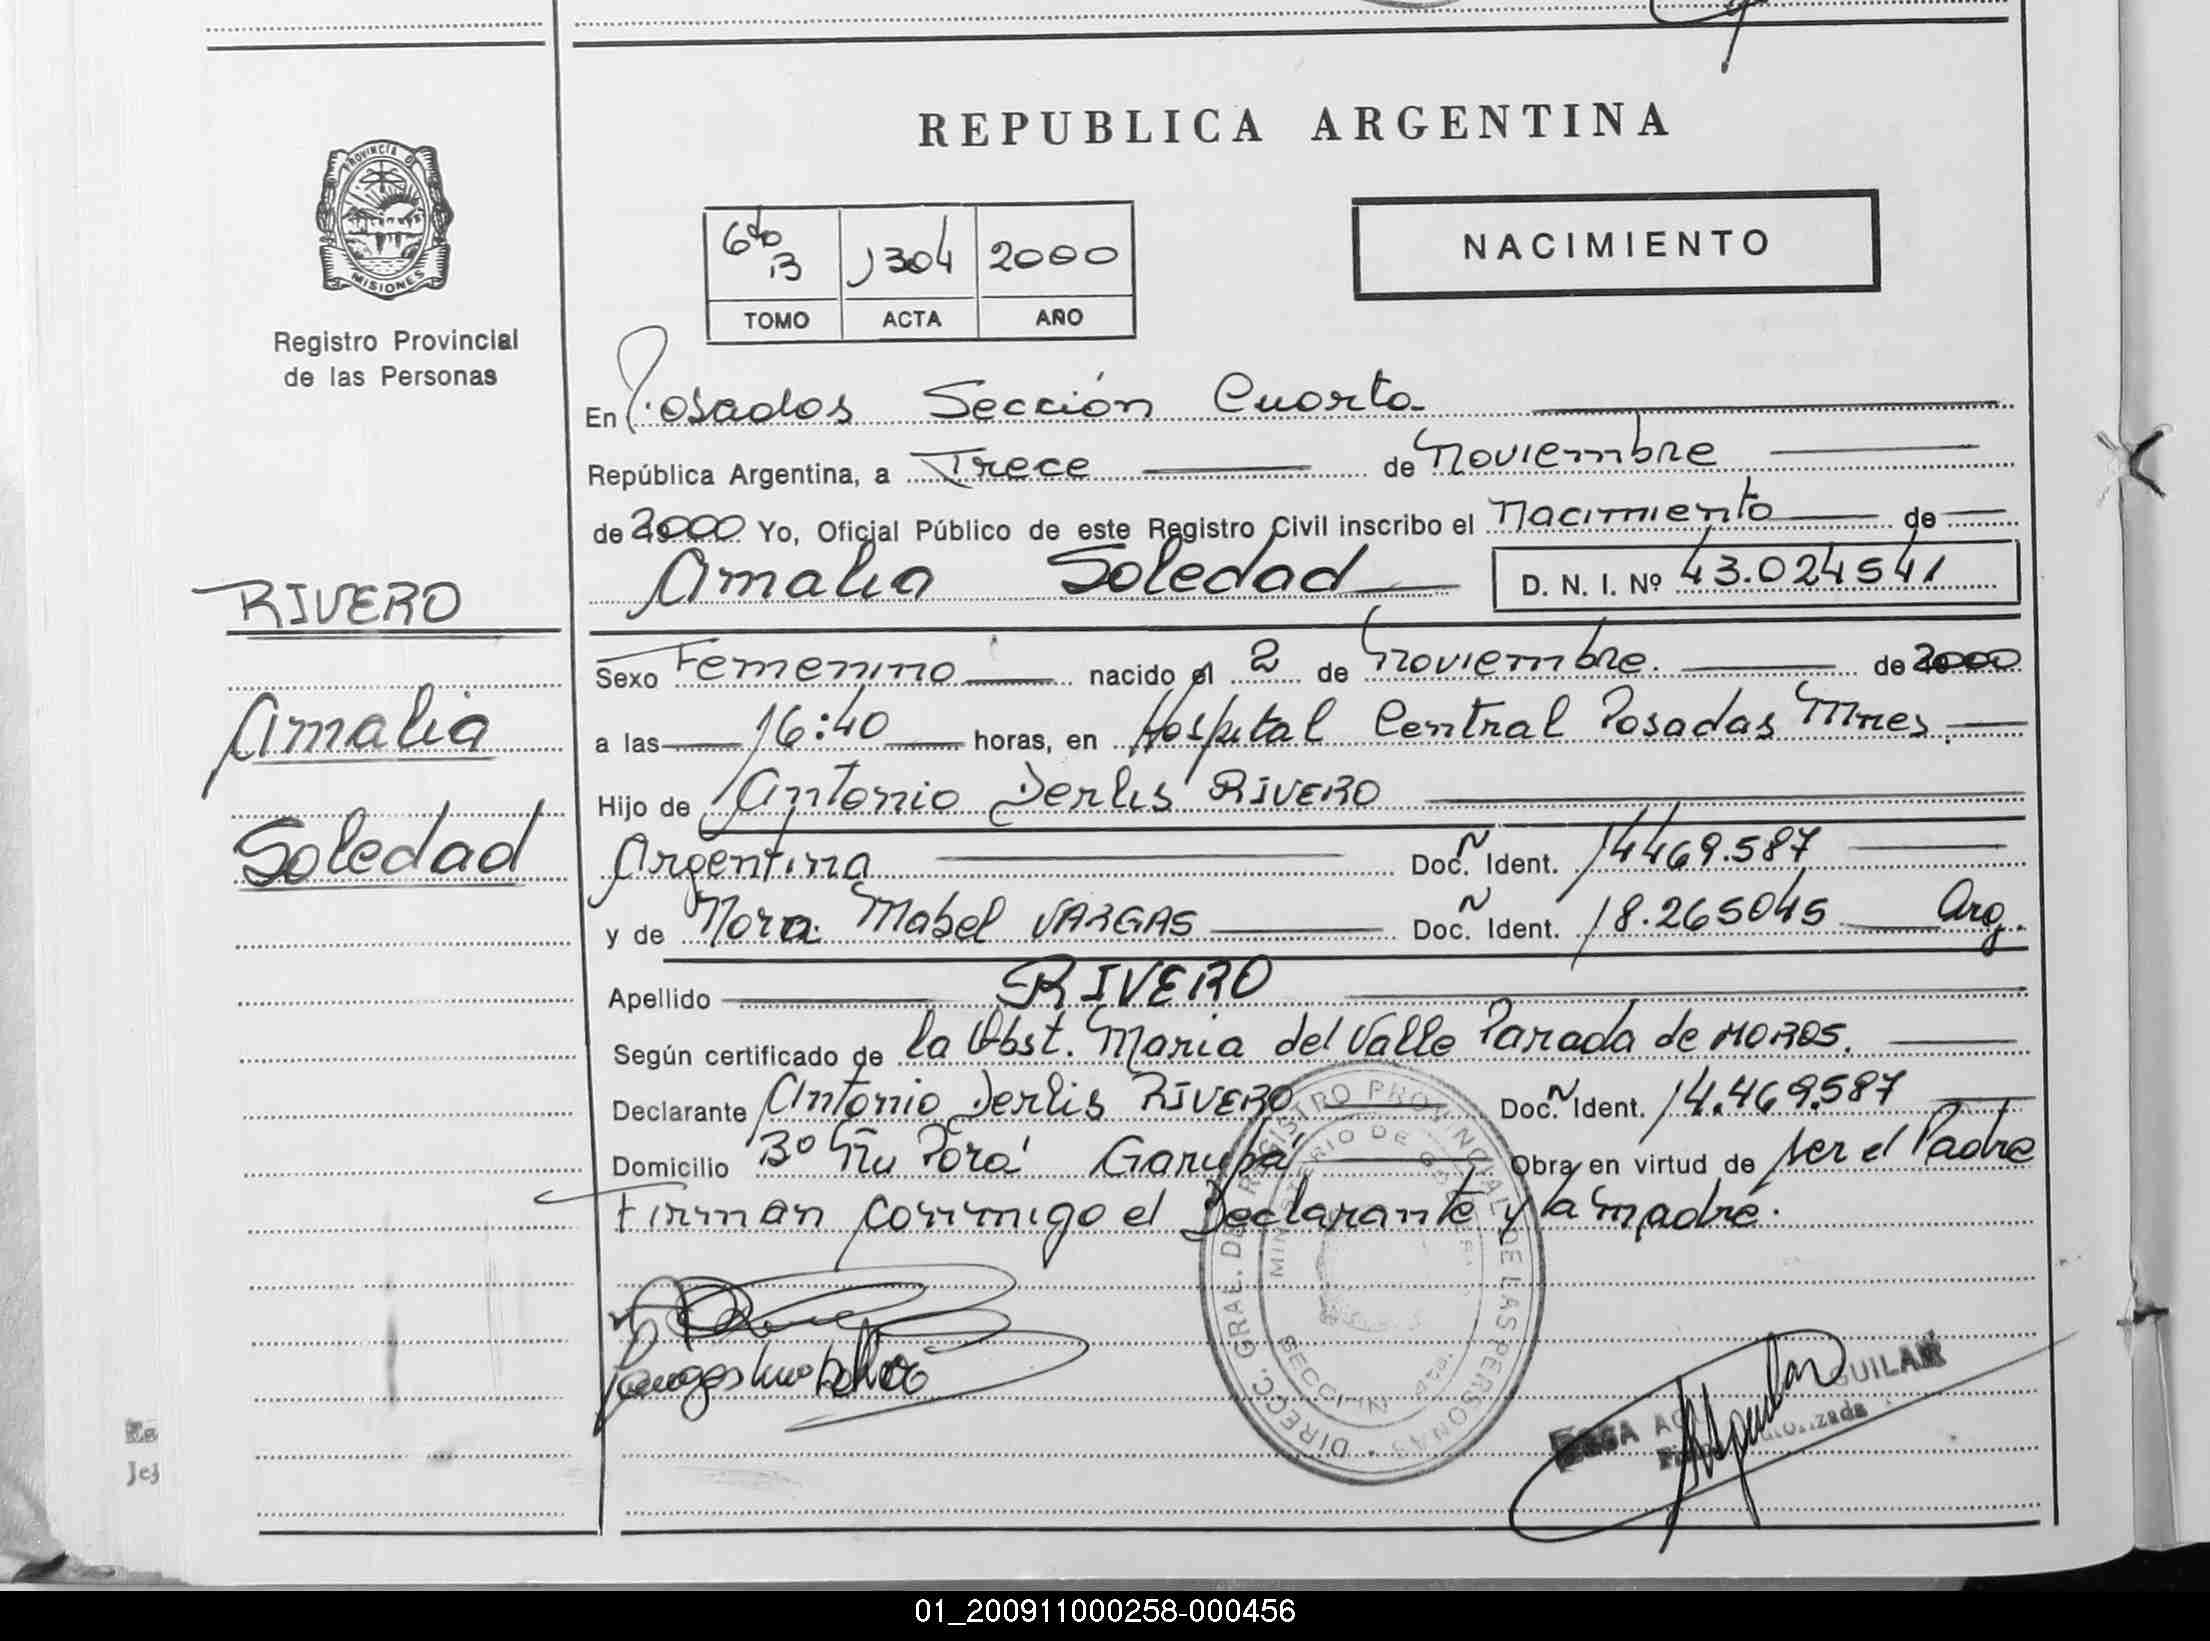 REPUBLICA ARGENTINA
PROVINCIA D
MISIONES
Registro Provincial
de las Personas
NACIMIENTO
6to B 1304 2000
TOMO ACTA AÑO
En Posadas Sección Cuarta
República Argentina, a Trece de Noviembre
de 2000 Yo, Oficial Público de este Registro Civil inscribo el Nacimiento de
Amalia Soledad D. N. I. Nº 43.024541
RIVERO
Amalia
Soledad
Sexo Femenino nacido el 2 de Noviembre. de 2000
a las 16:40 horas, en Hospital Central Posadas Mnes.
Hijo de Antonio Derlis RIVERO
Argentina Doc. Ñ Ident. 14469.587
y de Nora Mabel VARGAS Doc. Ñ Ident. 18.265045 Arg.
Apellido RIVERO
Según certificado de la Obst. Maria del Valle Parada de MOROS.
Declarante Antonio Derlis RIVERO Doc. Ñ Ident. 14.469.587
Domicilio Bº Ñu Porá Garupá Obra en virtud de ser el Padre
Firman conmigo el Declarante y la madre.
DIRECC. GRAL. DEL REGISTRO PROVINCIAL DE LAS PERSONAS
MINISTERIO DE
AGUILAR
01_200911000258-000456